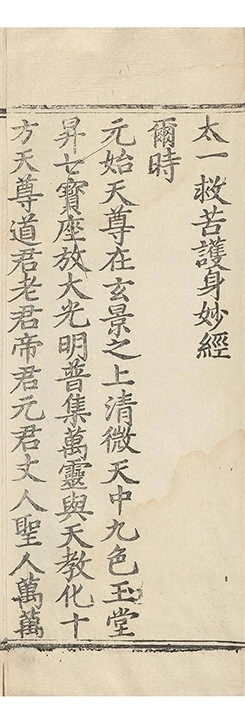 太一救苦護身妙經
爾時
元始天尊在玄景之上清微天中九色玉堂
昇七寶座放大光明普集萬靈與天教化十
方天尊道君老君帝君元君丈人聖人萬萬